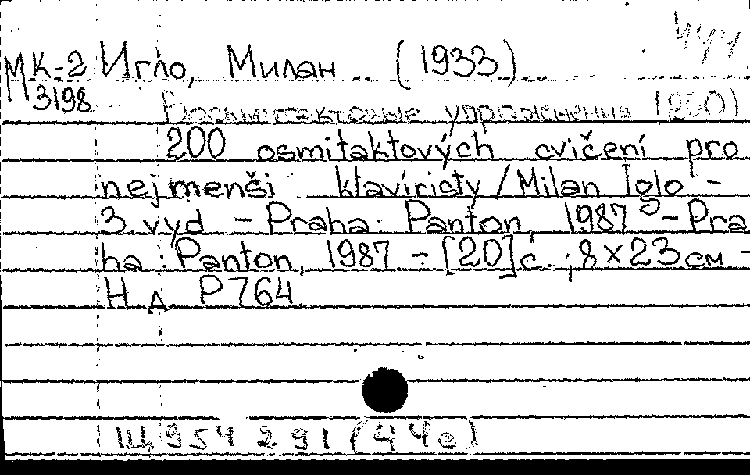 444
МК-2 Игло, Милан (1933)
3198 Восьмитактовые упражнения (200)
200 osmitaktových cvičení pro
nejmenší klavíristy / Milan Iglo -
3. vyd - Praha: Panton, 1987 - Pra
ha: Panton, 1987 - [20] с.; 8×23 см -
Н Д Р764
Щ 954 291 (44а)